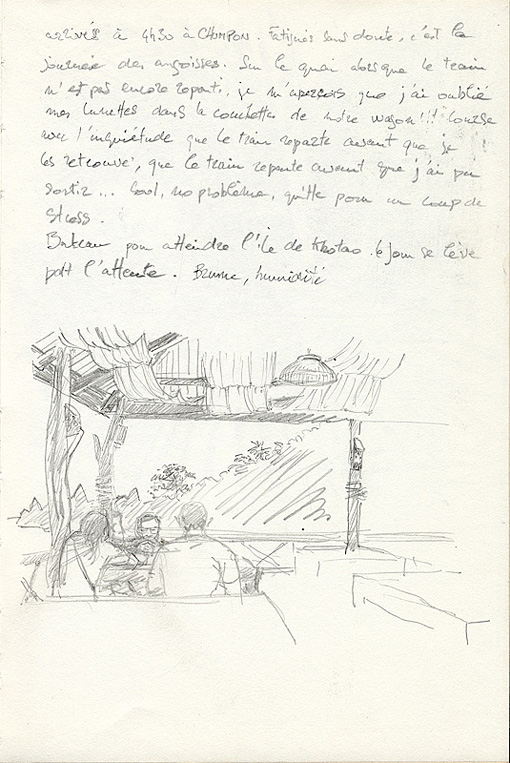 arrivés à 4h30 à CHOMPON. Fatigués sans doute, c'est la
journée des angoisses. Sur le quai alors que le train
n'est pas encore reparti, je m'aperçois que j'ai oublié
mes lunettes dans la couchette de notre wagon!!! Course
avec l'inquiétude que le train reparte avant que je
les retrouve, que le train reparte avant que j'ai pu
sortir... bool, no problème, quitte pour un coup de
stress.
Bateau pour atteindre l'île de Kho tao. le jour se lève
pdt l'attente. Brume, humidité